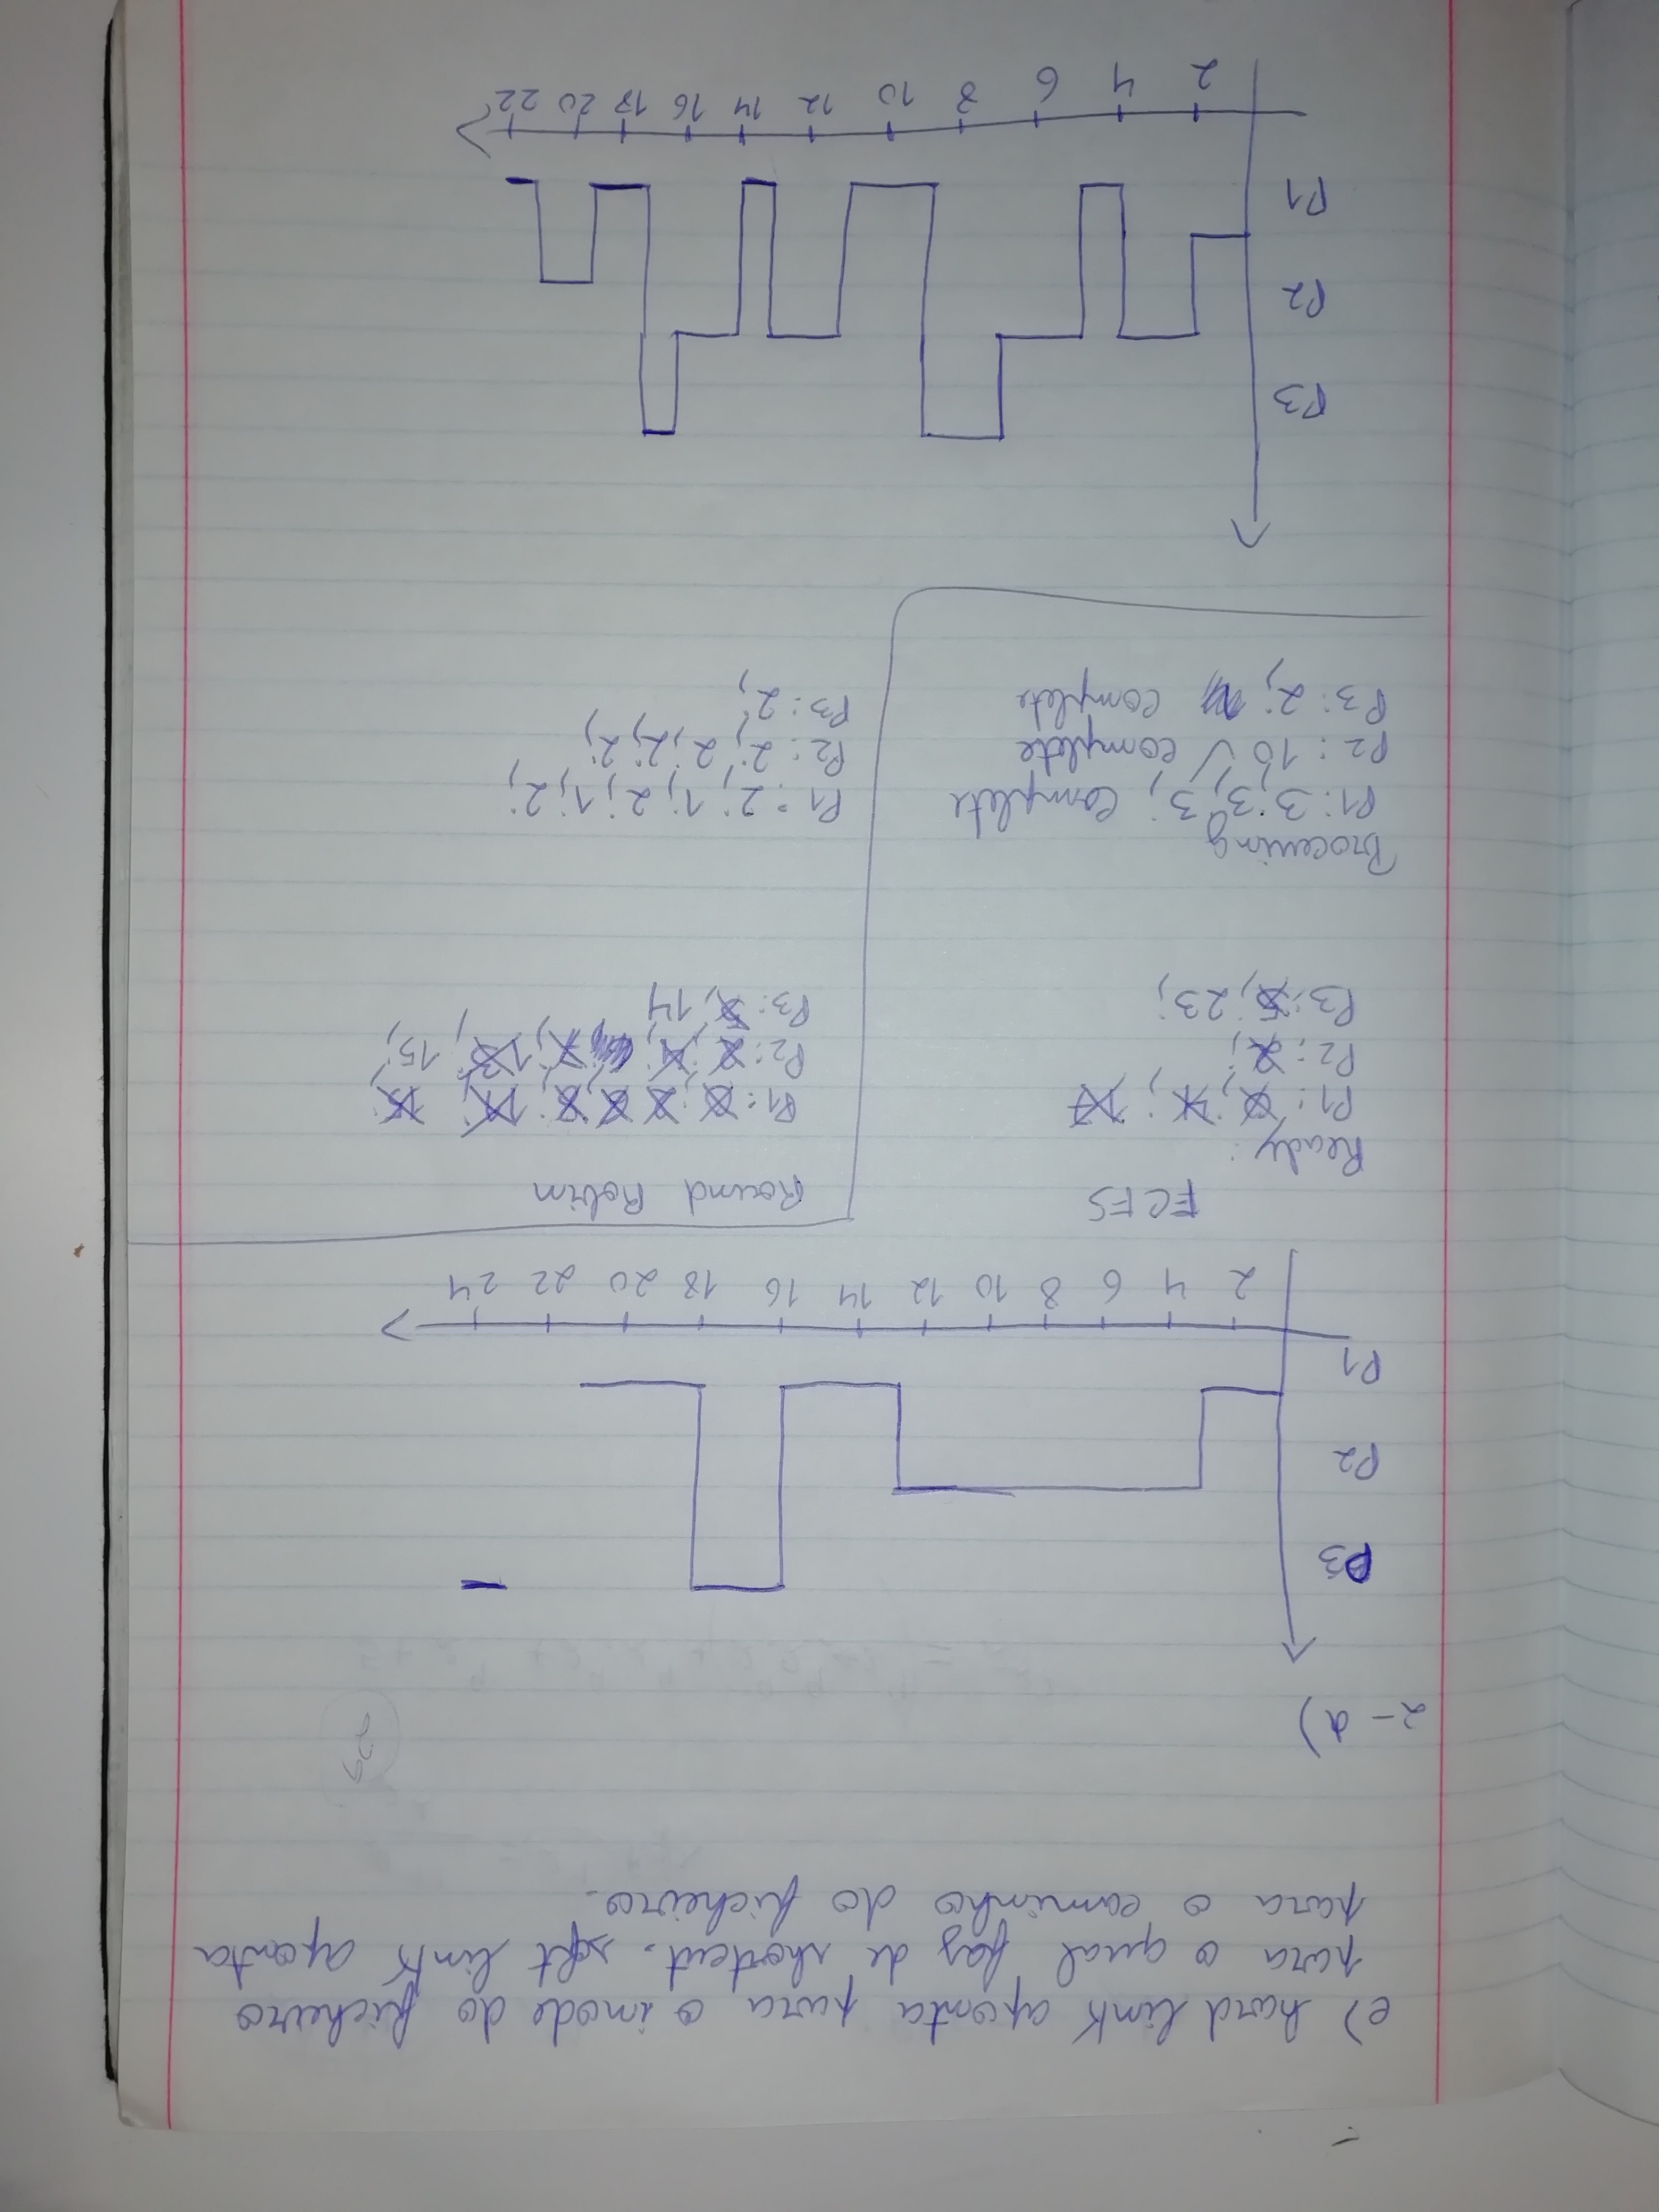 e) hard link aponta para o inode do ficheiro
para o qual faz de shortcut. soft link aponta
para o caminho do ficheiro.
2- d)
P3
P2
P1
2 4 6 8 10 12 14 16 18 20 22 24
FCFS
Ready:
P1: 0; 4; 17
P2: 2;
P3: 5; 23;
Processing
P1: 3; 3; 3; complete
P2: 10 ✓ complete
P3: 2; complete
Round Robin
P1: 0; 2 6, 8; 14; 15;
P2: 2; 4; 7; 13; 15;
P3: 5, 14
P1: 2; 1; 2; 1; 2;
P2: 2; 2; 2; 2;
P3: 2;
P3
P2
P1
2 4 6 8 10 12 14 16 18 20 22